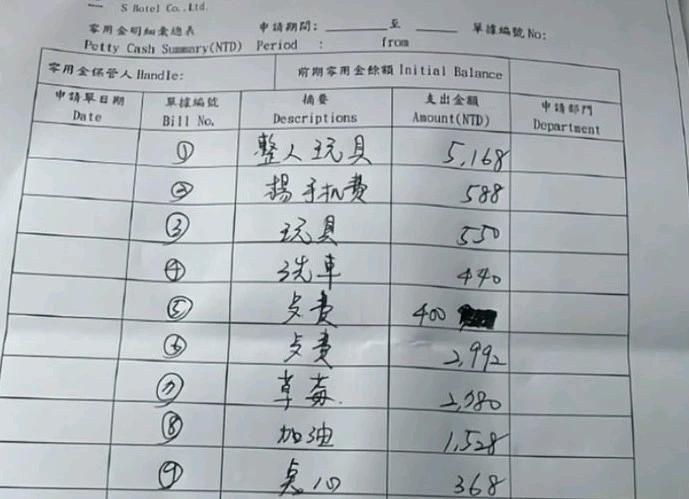 S Hotel Co., Ltd.
零用金明細彙總表 申請期間: 至 單據編號No:
Petty Cash Summary(NTD) Period : from
零用金保管人Handle: 前期零用金餘額 Initial Balance
申請單日期 單據編號 摘要 支出金額 申請部門
Date Bill No. Descriptions Amount(NTD) Department
① 整人玩具 5,168
② 楊手机費 588
③ 玩具 550
④ 洗車 440
⑤ 400
⑥ 2,992
⑦ 草莓
⑧ 加油 1,528
⑨ 点心 368